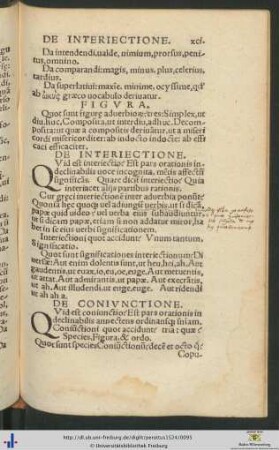 DE INTERIECTIONE. xcf.
Da intendendi, ualde, nimium, prorsus, peni-
tus, omnino.
Da comparandi: magis, minus, plus, celerius,
tardius.
Da superlatiui: maxīe. minime, ocyssime, qđ
ab græco uocabulo deriuatur.
FIGVRA.
Quot sunt figuræ aduerbio℞: tres: Simplex, ut
diu, huc, Composita, ut interdiu, adhuc. Decom-
posita aut quæ a compositis deriuāt, ut a miseri
cordi misericorditer: ab indocto indocte: ab eff
caci efficaciter.
DE INTERIECTIONE.
Quid est interiectio? Est pars orationis in-
declinabilis uoce incognita, mētis affectū
significās. Quare dicit interiectio? Quia
interiacet alijs partibus rationis.
Cur græci interiectionē inter aduerbia ponūt?
Quoniā hęc quoq uel adiungit uerbis, ut si dicā,
papæ quid uideo? uel uerba eius subaudiuntur
ut si dicam papæ, etiam si non addatur miror, ha
bet in se eius uerbi significationem.
Interiectioni quot accidunt? Vnum tantum,
significatio.
Quot sunt significationes interiectionum? Di
uersæ: Aut enim dolentis sunt, ut heu, hei, ah. Aut
gaudentis, ut euax, io, eu, oe, euge. Aut metuentis,
ut attat. Aut admirantis, ut papæ. Aut execrātis,
ut ah. Aut illudendi, ut enge, euge. Aut ridendi
ut ah ah a.
DE CONIVNCTIONE.
Quid est coniunctio? Est pars orationis in
declinabilis annectens ordinansq sniam.
Coniūctioni quot accidunt? tria: quæ?
Species, Figura, & ordo.
Quot sunt species Coniūctionū? decē et octo q̃?
Copu-
http://dl.ub.uni-freiburg.de/diglit/perottus1524/0095
© Universitätsbibliothek Freiburg
Baden-Württemberg